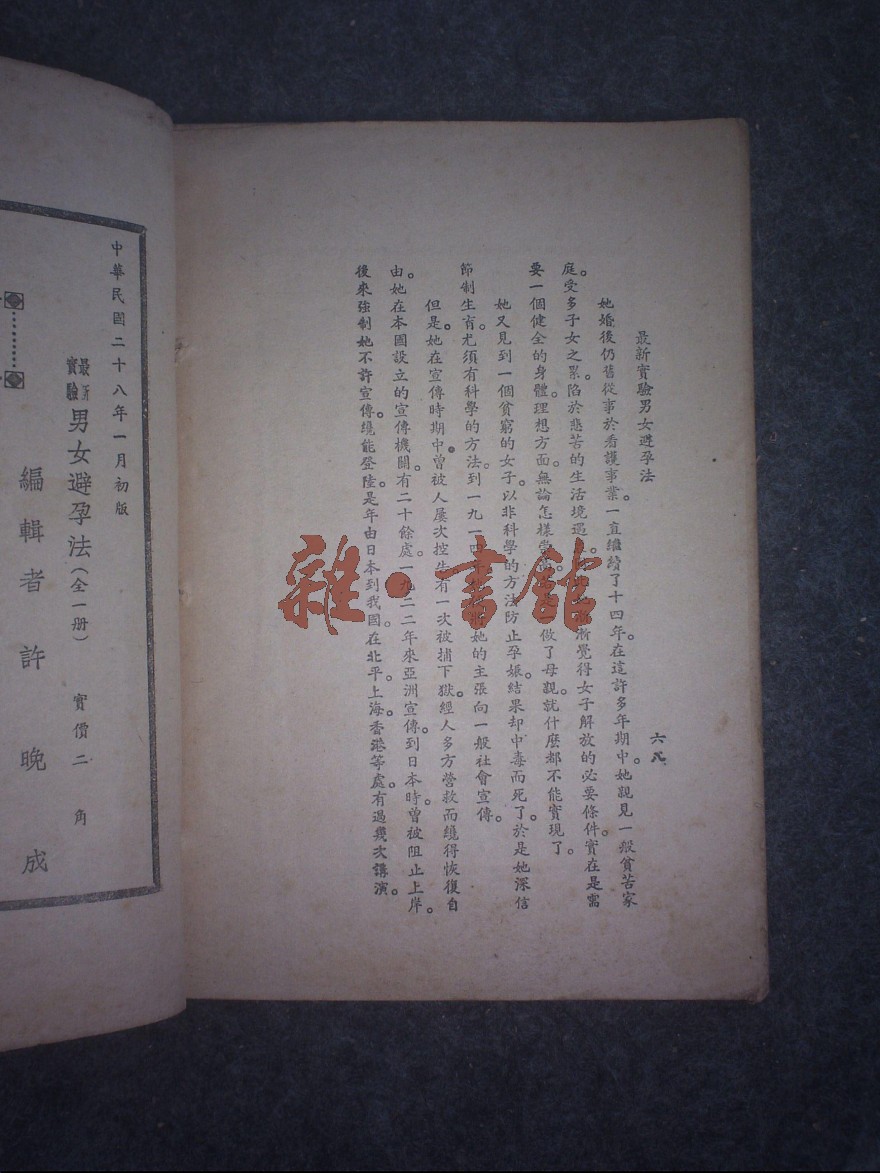 最新實驗男女避孕法
六八
她婚後仍舊從事於看護事業。一直繼續了十四年。在這許多年期中。她親見一般貧苦家
庭。受多子女之累。陷於悲苦的生活境遇。漸覺得女子解放的必要條件。實在是需
要一個健全的身體。理想方面。無論怎樣做了母親。就什麽都不能實現了。
她又見到一個貧窮的女子。以非科學的方法防止孕娠。結果却中毒而死了。於是她深信
節制生育。尤須有科學的方法。到一九一她的主張向一般社會宣傳。
但是。她在宣傳時期中。曾被人屢次控告。有一次被捕下獄。經人多方營救。而纔得恢復自
由。她在本國設立的宣傳機關。有二十餘處。一九二二年來亞洲宣傳。到日本時。曾被阻止上岸。
後來强制她不許宣傳。纔能登陸。是年由日本到我國。在北平。上海。香港等處。有過幾次講演。
雜·書館
中華民國二十八年一月初版
最新實驗 男女避孕法（全一册） 實價二角
編輯者 許晚成